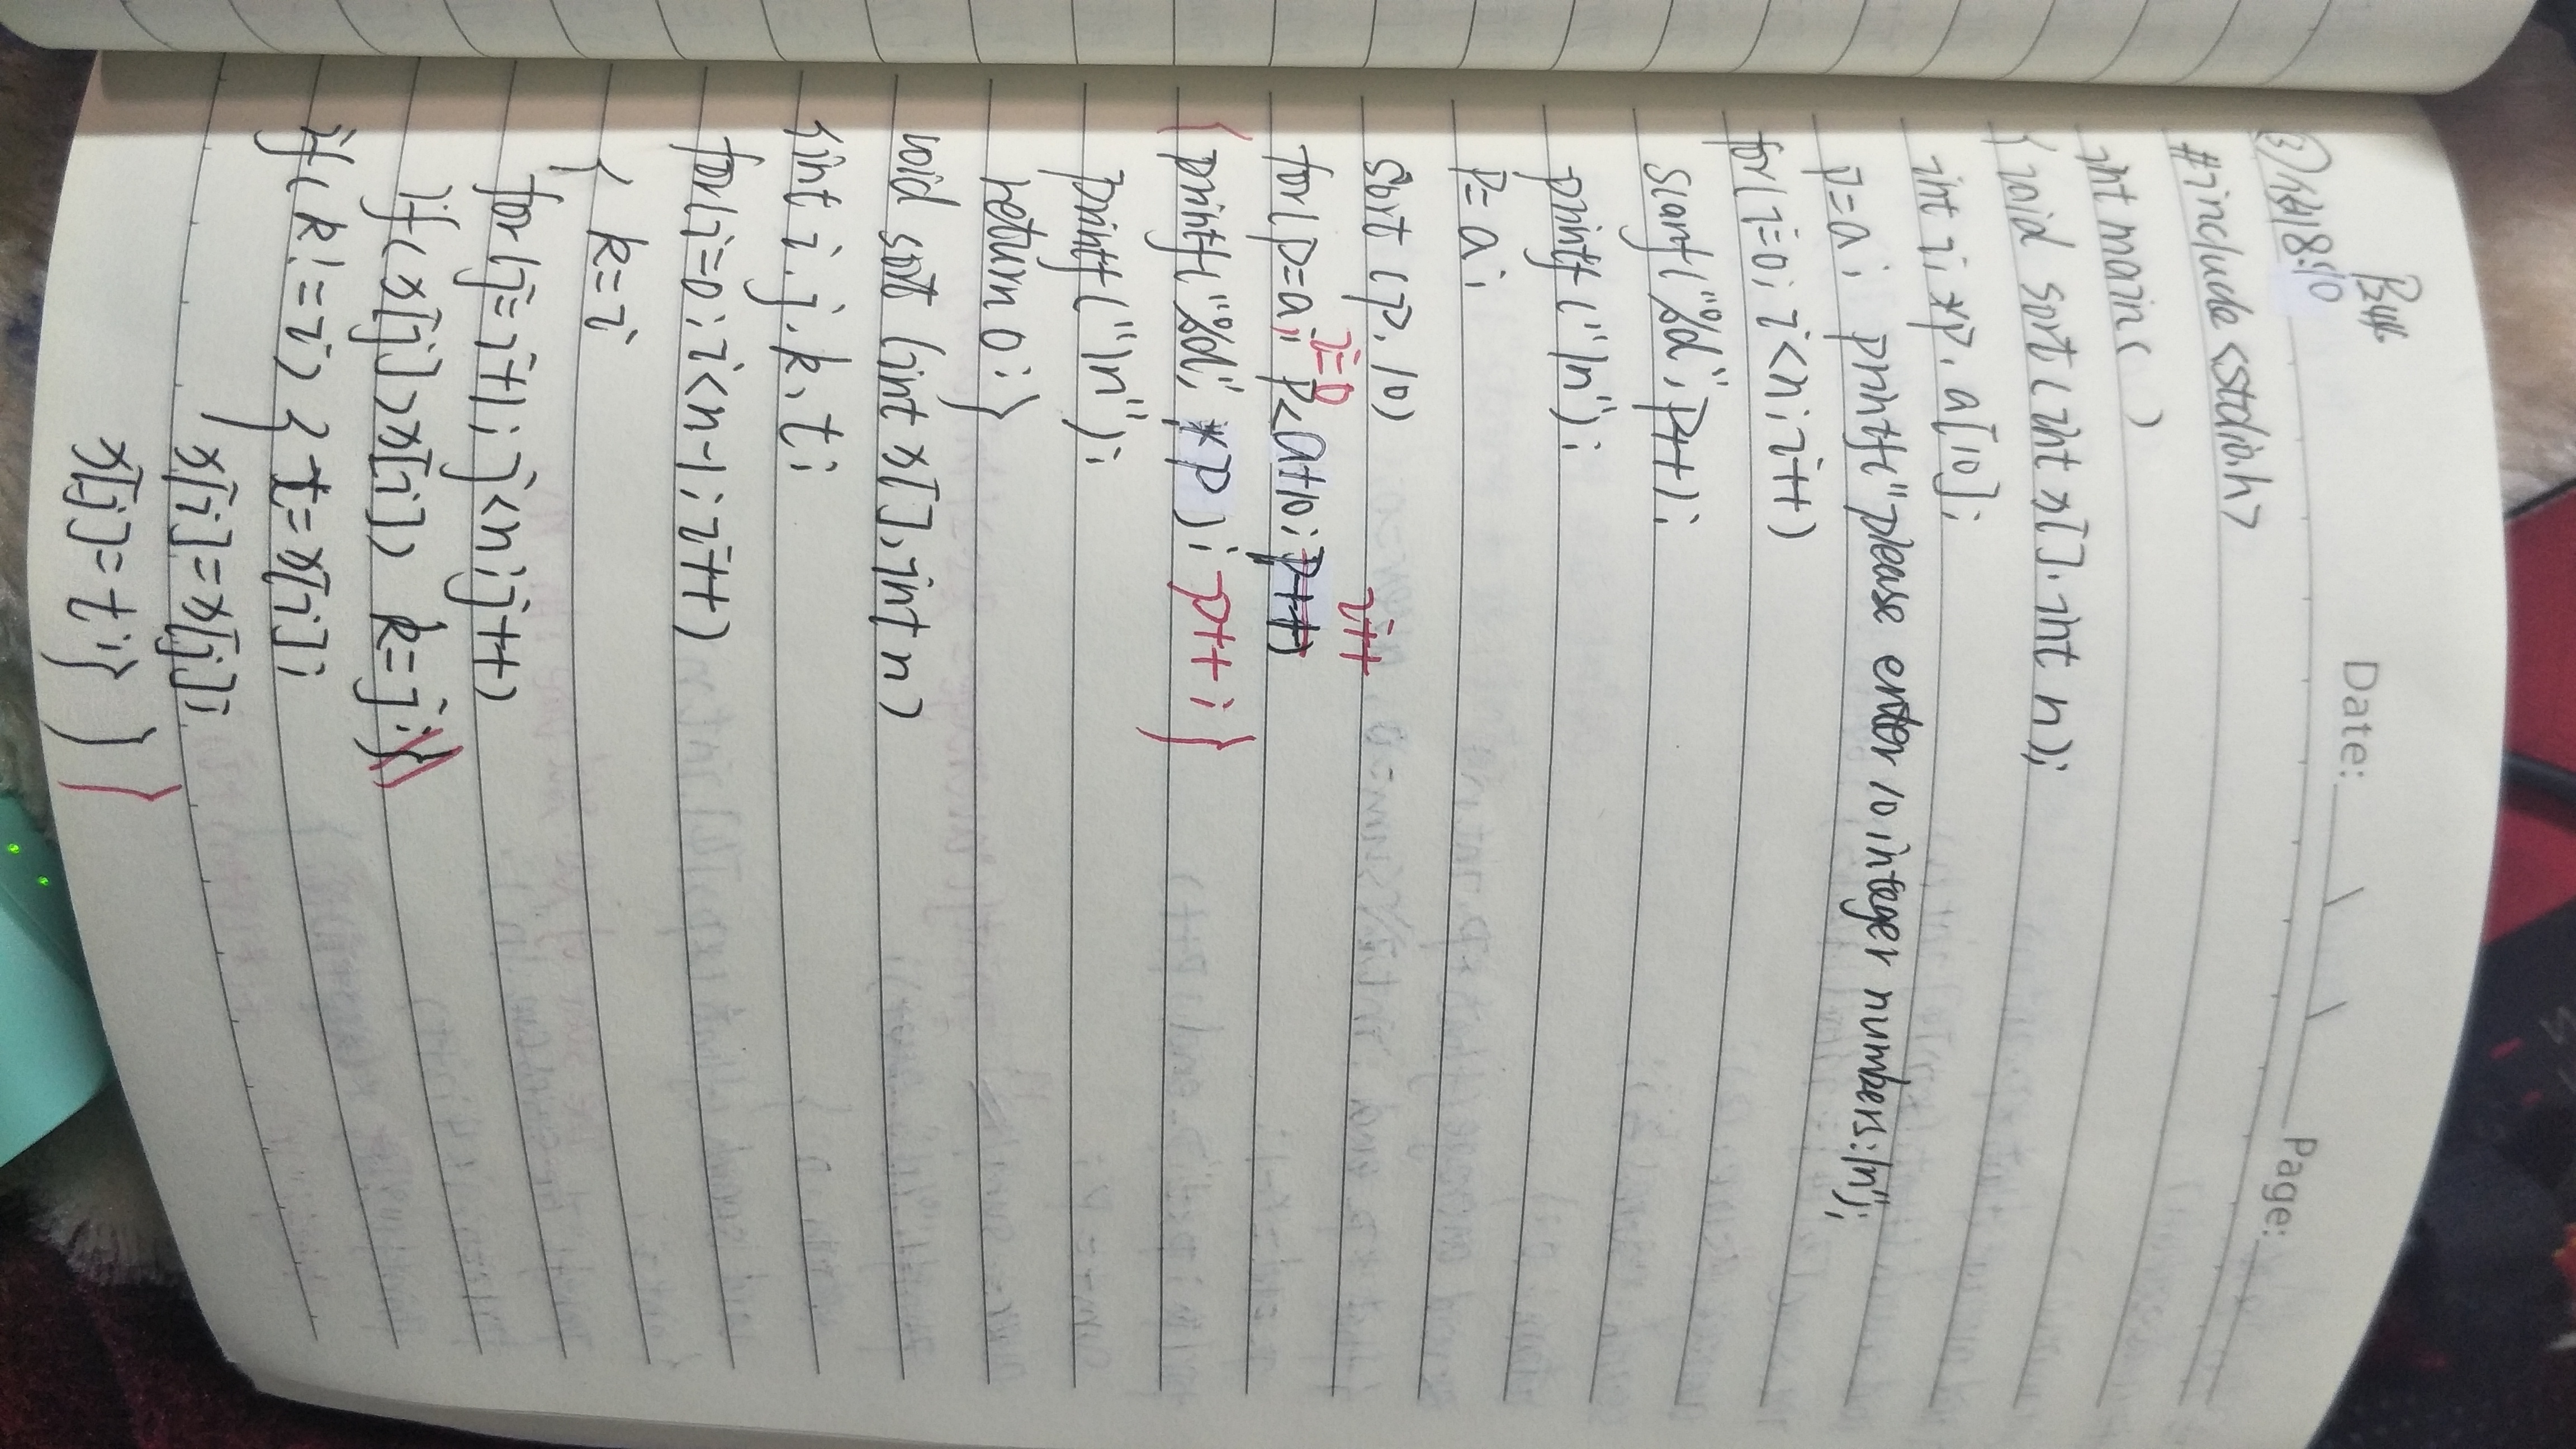 P246
Date: \ \ Page:
③例8.10
#include <stdio.h>
int main( )
{void sort(int x[],int n);
int i,*p,a[10];
p=a; printf("please enter 10 integer numbers:\n");
for(i=0;i<n;i++)
scanf("%d",p++);
printf("\n");
p=a;
sort(p,10)
i=0 i++
for(p=a; p<a+10; p++)
{printf("%d",*p); p++;}
printf("\n");
return 0;}
void sort(int x[],int n)
{int i,j,k,t;
for(i=0;i<n-1;i++)
{ k=i
for(j=i+1;j<n;j++)
if(x[j]>x[i]) k=j;}
if(k!=i) { t=x[i];
x[i]=x[j];
x[j]=t;} } }